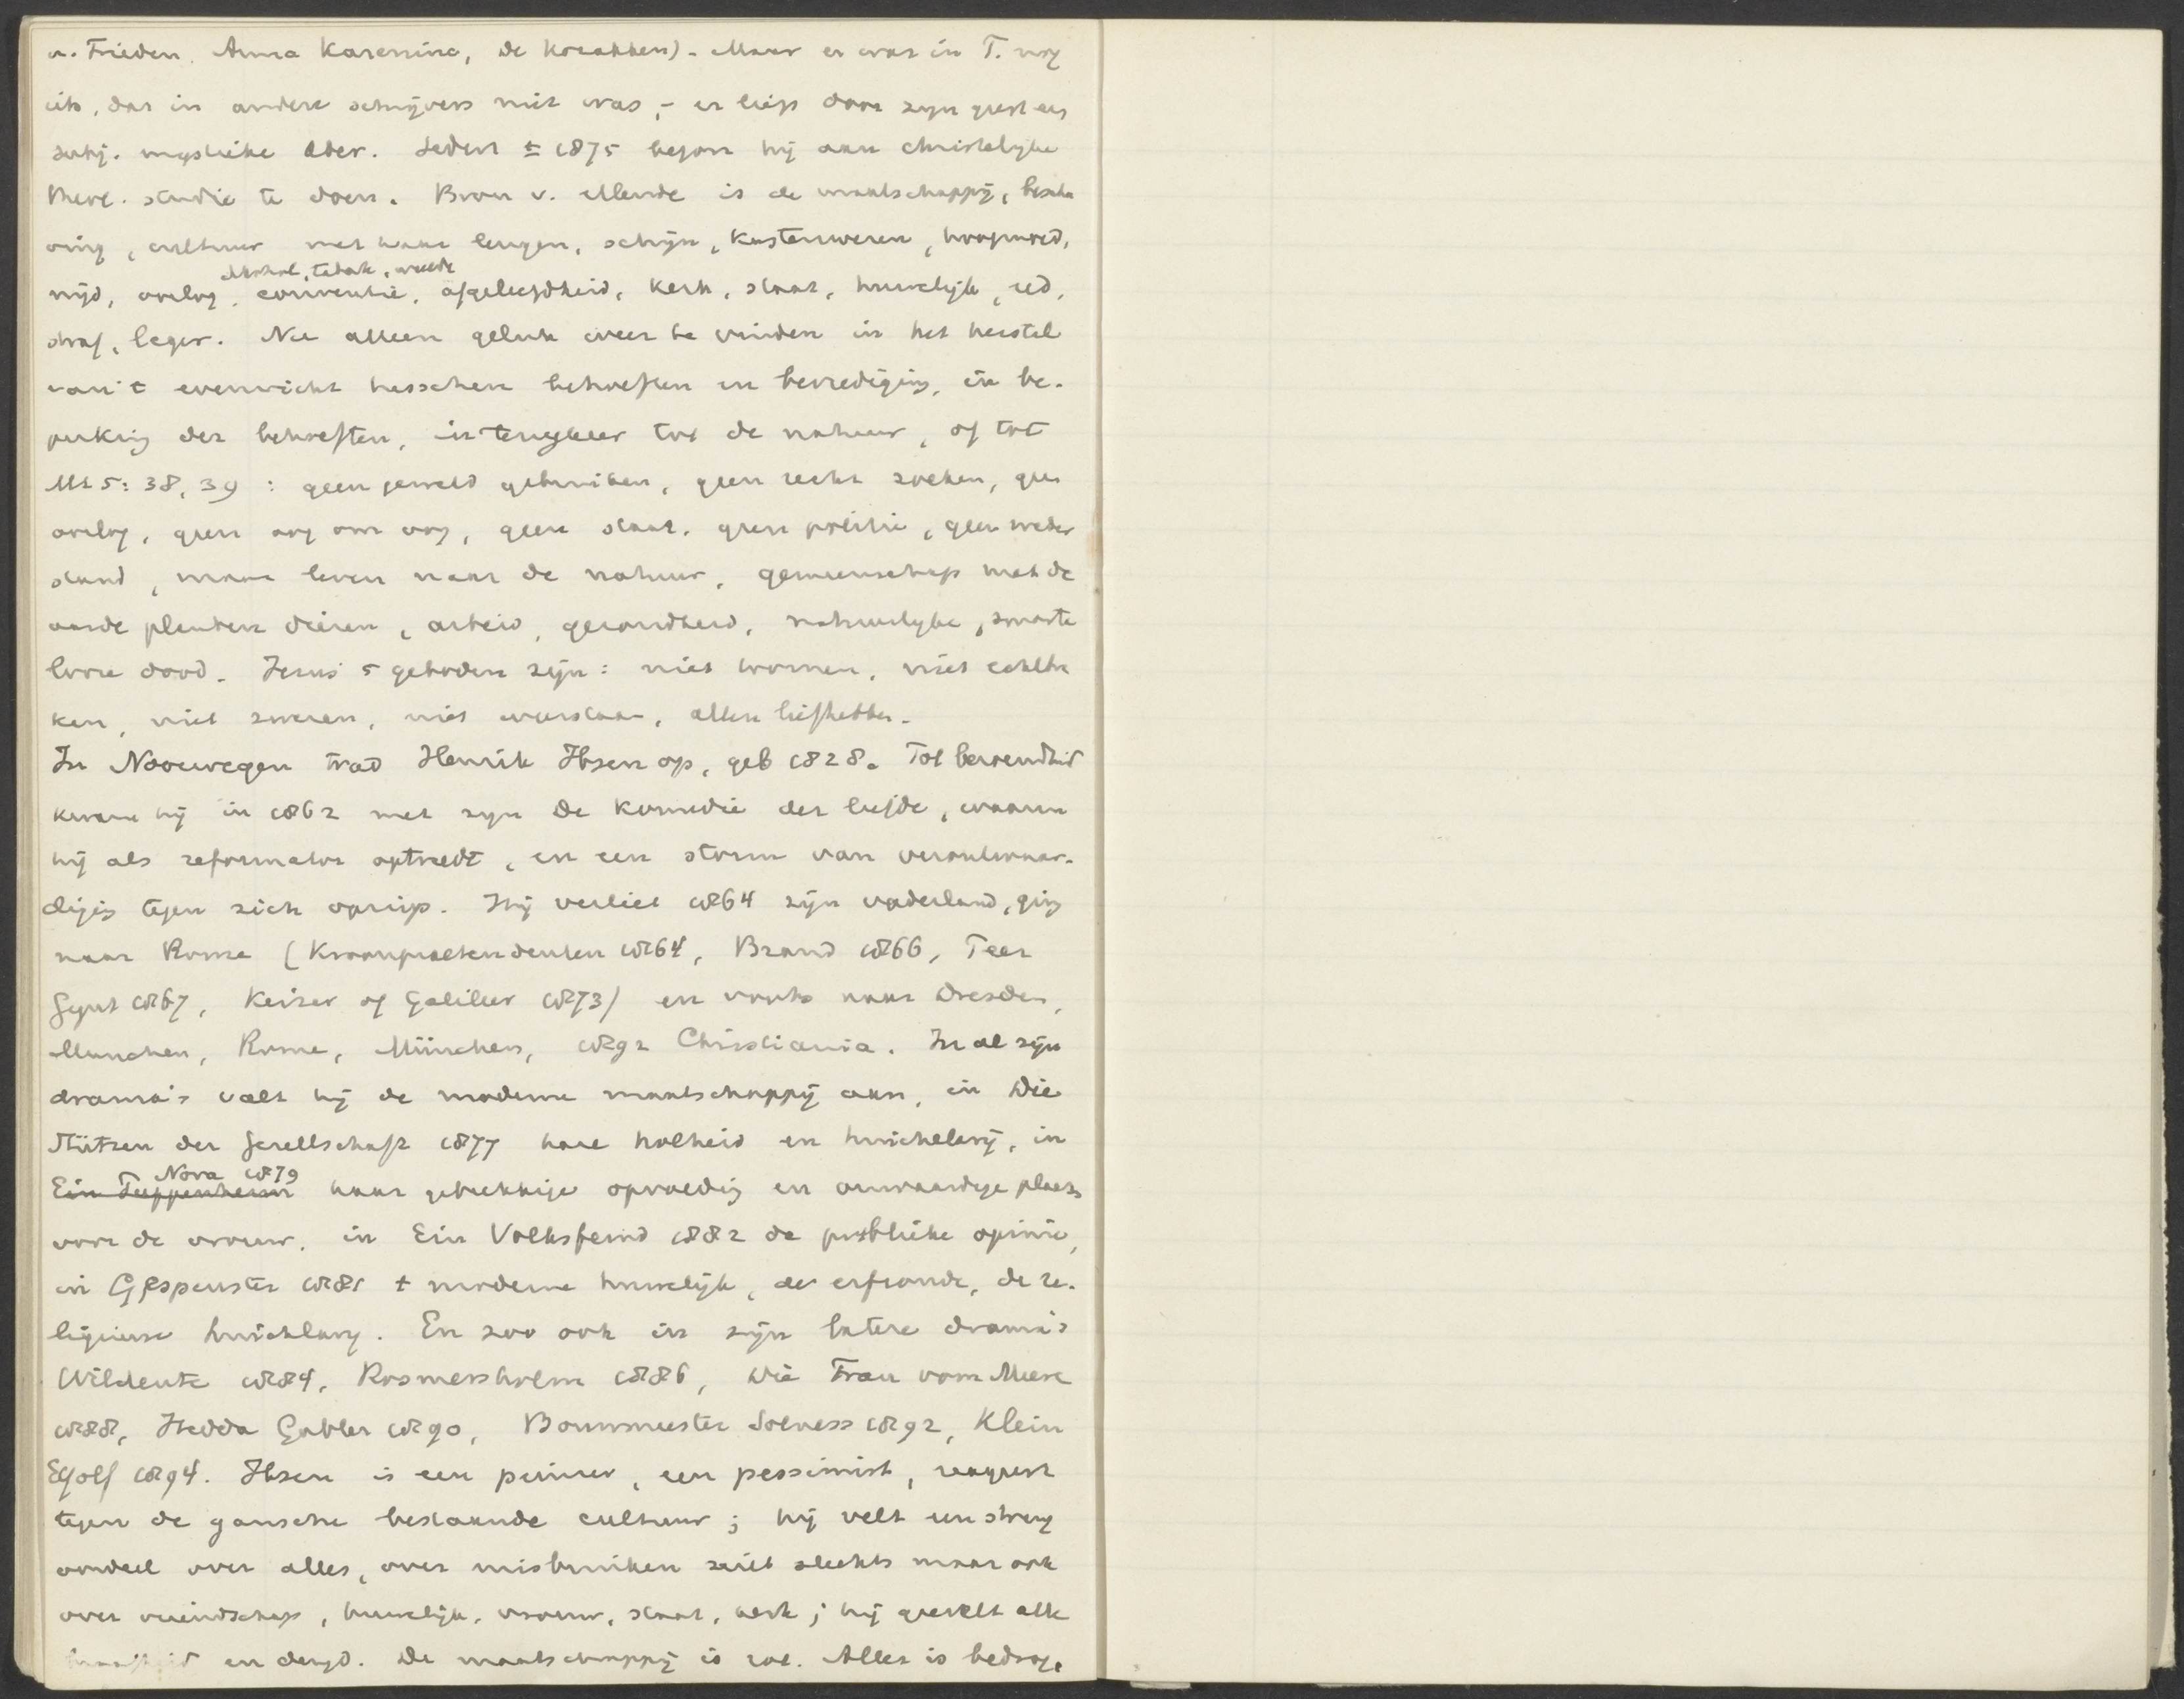 u. Frieden, Anna Karenina, De Kozakken). Maar er was in T. nog
iets, dat in andere schrijvers niet was, - er liep door zijn geest een
mystieke ader. Sedert ± 1875 begon hij aan christelijke
theol. studie te doen. Bron v. ellende is de maatschappij, bescha
ving, cultuur met haar leugen, schijn, kastenwezen, hoogmoed,
alkohol, tabak, weelde
nijd, oorlog, conventie, afgeleefdheid, kerk, staat, huwelijk, eed,
straf, leger. Nu alleen geluk weer te vinden in het herstel
van 't evenwicht tusschen behoeften en bevrediging, in be-
perking der behoeften, in terugkeer tot de natuur, of tot
Mt 5: 38, 39 : geen geweld gebruiken, geen recht zoeken, geen
oorlog, geen oog om oog, geen staat, geen politie, geen weder
stand, maar leven naar de natuur, gemeenschap met de
aarde planten dieren, arbeid, gezondheid, natuurlijke, smarte
looze dood. Jezus' 5 geboden zijn: niet toornen, niet echtbre
ken, niet zweren, niet weerstaan, allen liefhebben.
In Noorwegen trad Henrik Ibsen op, geb 1828. Tot beroemdheid
kwam hij in 1862 met zijn De Komedie der liefde, waarin
hij als reformator optreedt, en een storm van verontwaar-
diging tegen zich opriep. Hij verliet 1864 zijn vaderland, ging
naar Rome (Kroonpraetendenten 1864, Brand 1866, Peer
Gynt 1867, Keizer of Galileer 1873) en voorts naar Dresden,
Munchen, Rome, München, 1892 Christiania. In al zijn
drama's valt hij de moderne maatschappij aan, in Die
Stützen der Gesellschaft 1877 hare holheid en huichelarij, in
Nora 1879
Ein Puppenheim haar gebrekkige opvoeding en onwaardige plaats
voor de vrouw, in Ein Volksfeind 1882 de publieke opinie,
in Gespenster 1881 t moderne huwelijk, de erfzonde, de re-
ligieuse huichlarij. En zoo ook in zijn latere drama's
Wildente 1884, Rosmersholm 1886, Die Frau vom Meere
1888, Hedda Gabler 1890, Bouwmeester Solness 1892, Klein
Eyolf 1894. Ibsen is een peinzer, een pessimist, reageert
tegen de gansche bestaande cultuur; hij velt een streng
oordeel over alles, over misbruiken niet slechts maar ook
over vriendschap, huwelijk, vrouw, staat, kerk; hij geeselt alle
en deugd. De maatschappij is rot. Alles is bedrog,